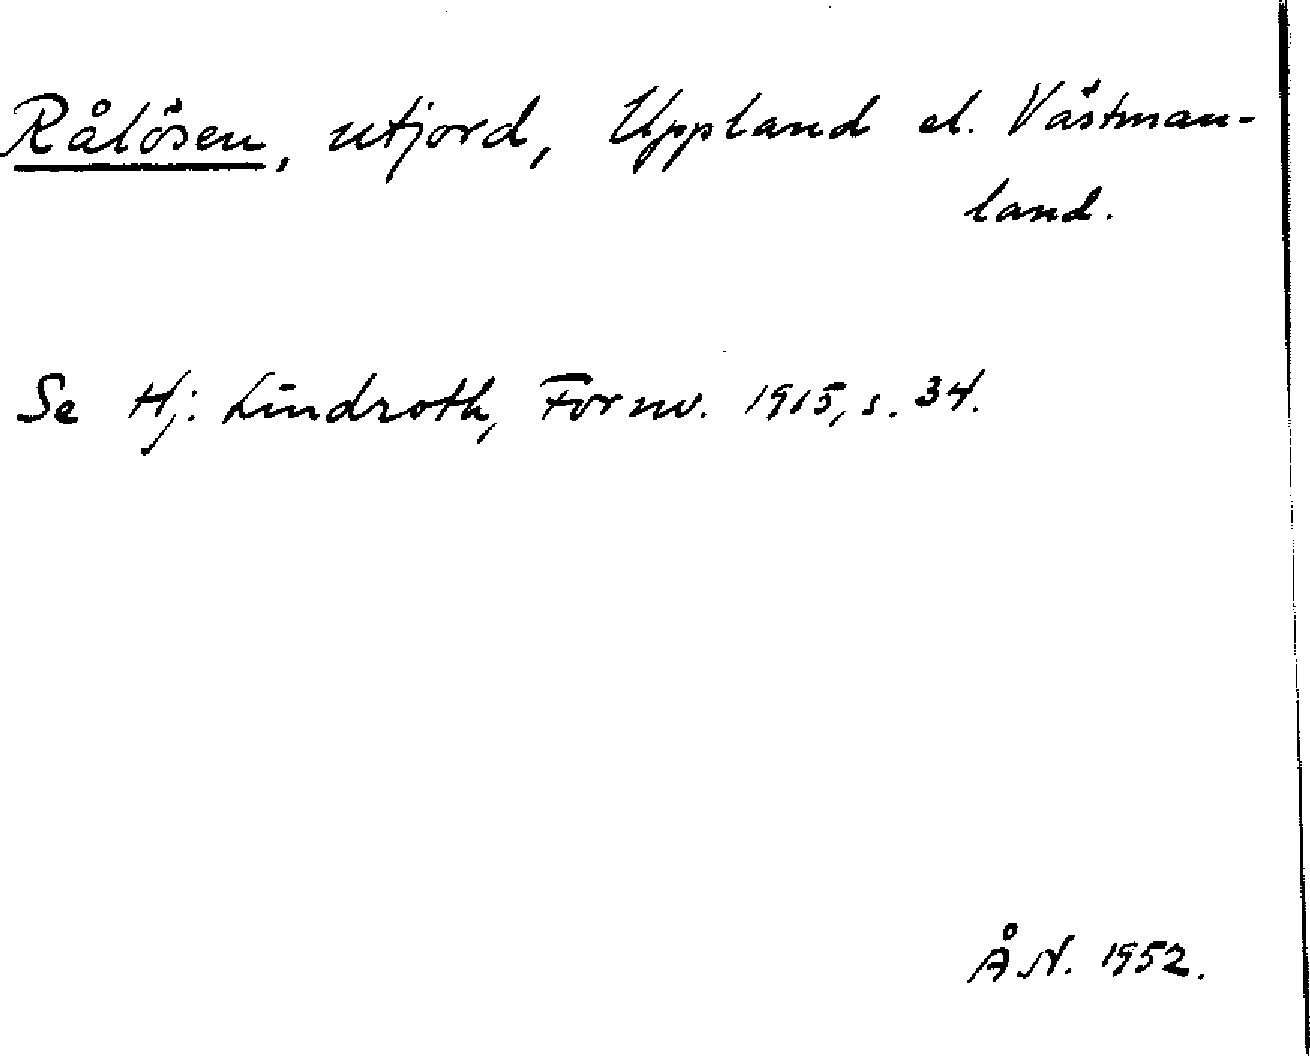 Rålösen, utjord, Uppland el. Västman-
land.
Se Hj. Lindroth, Fornv. 1915, s. 34.
Å.N. 1952.